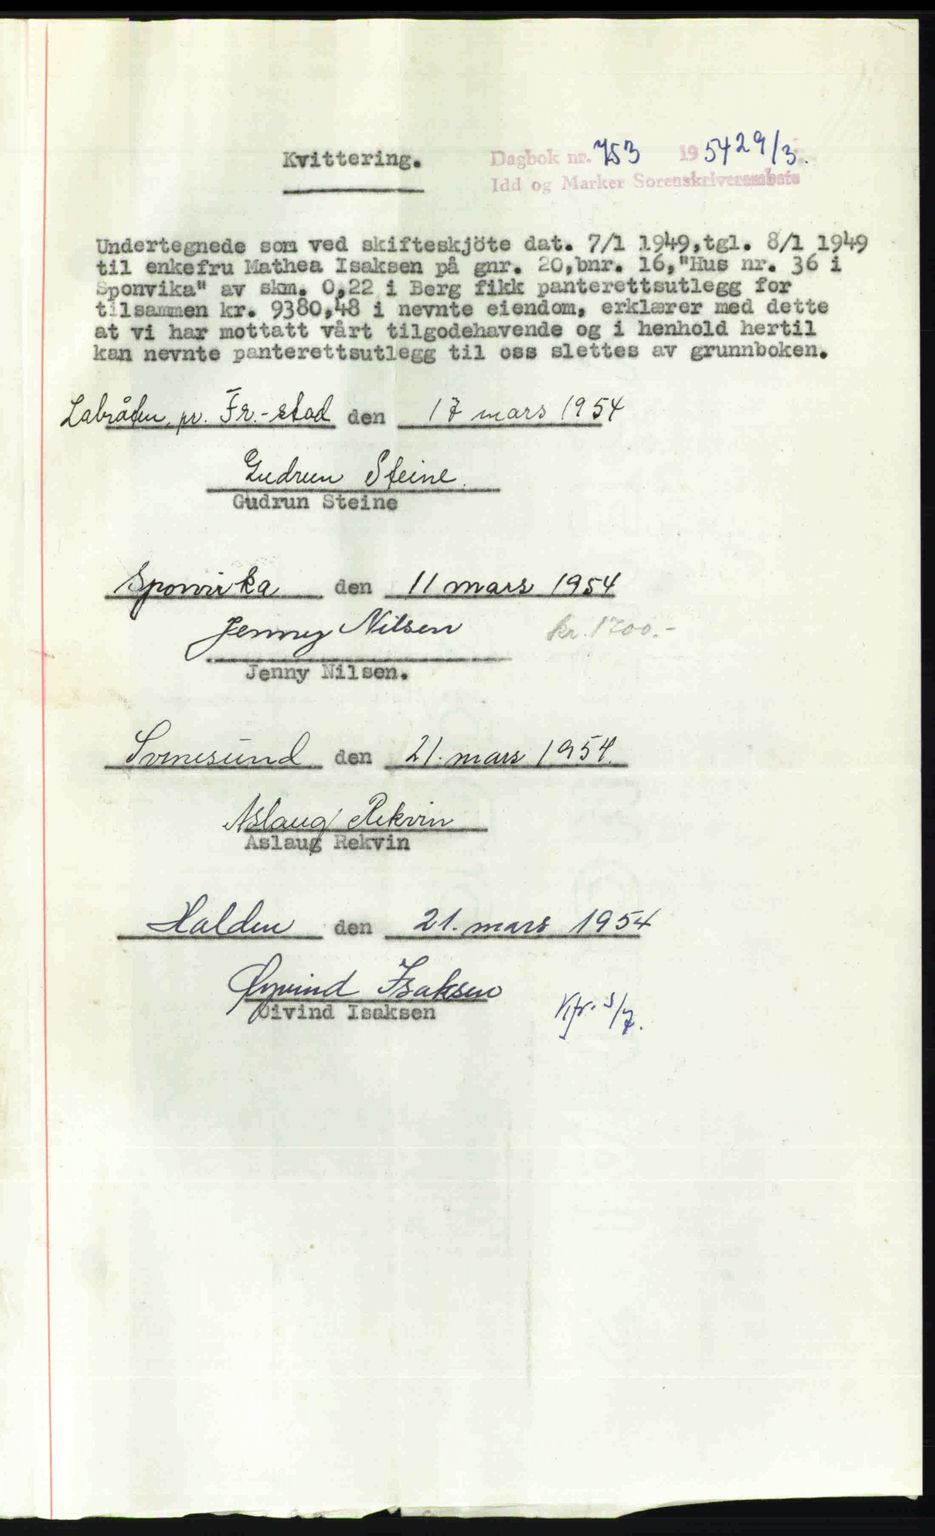 Kvittering.
Dagbok nr. 753 1954 29/3.
Idd og Marker Sorenskriverembete
Undertegnede som ved skifteskjöte dat. 7/1 1949,tgl. 8/1 1949
til enkefru Mathea Isaksen på gnr. 20,bnr. 16,"Hus nr. 36 i
Sponvika" av skm. 0,22 i Berg fikk panterettsutlegg for
tilsammen kr. 9380,48 i nevnte eiendom, erklærer med dette
at vi har mottatt vårt tilgodehavende og i henhold hertil
kan nevnte panterettsutlegg til oss slettes av grunnboken.
pr. Fr.-stad den 17 mars 1954
Gudrun Steine.
Gudrun Steine
Sponvika den 11 mars 1954
Jenny Nilsen kr. 1700.-
Jenny Nilsen.
Svinesund den 21. mars 1954.
Aslaug Rekvin
Aslaug Rekvin
Halden den 21. mars 1954
Øyvind Isaksen
Öivind Isaksen
Kfr. 5/7.